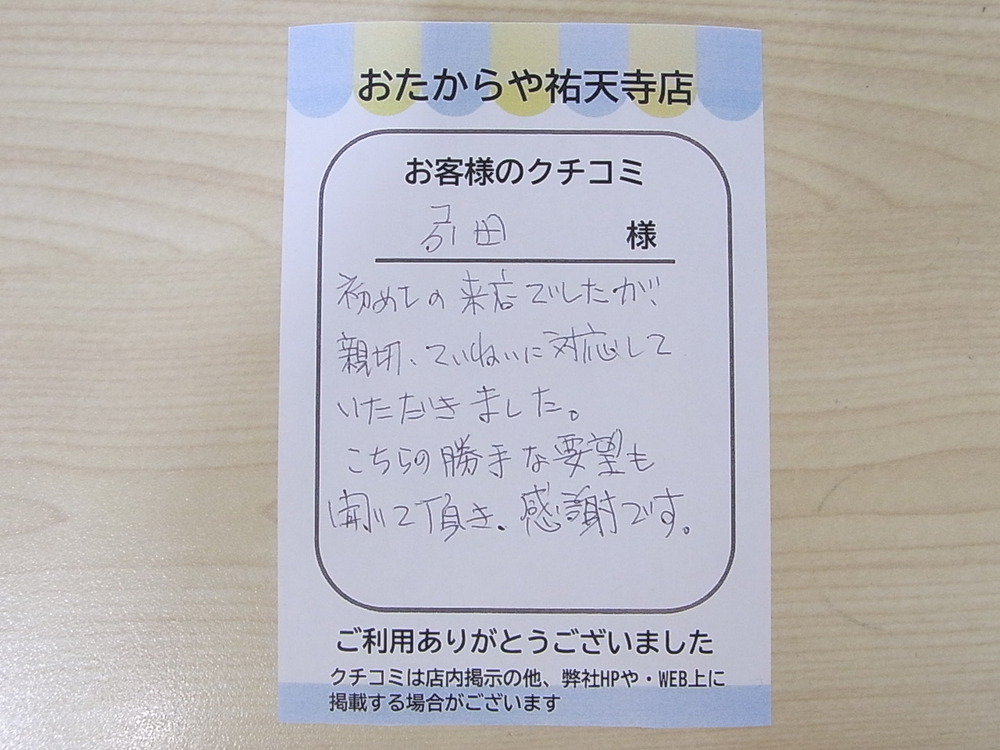 おたからや祐天寺店
お客様のクチコミ
田 様
初めての来店でしたが、
親切、ていねいに対応して
いただきました。
こちらの勝手な要望も
聞いて頂き、感謝です。
ご利用ありがとうございました
クチコミは店内掲示の他、弊社HPや・WEB上に
掲載する場合がございます